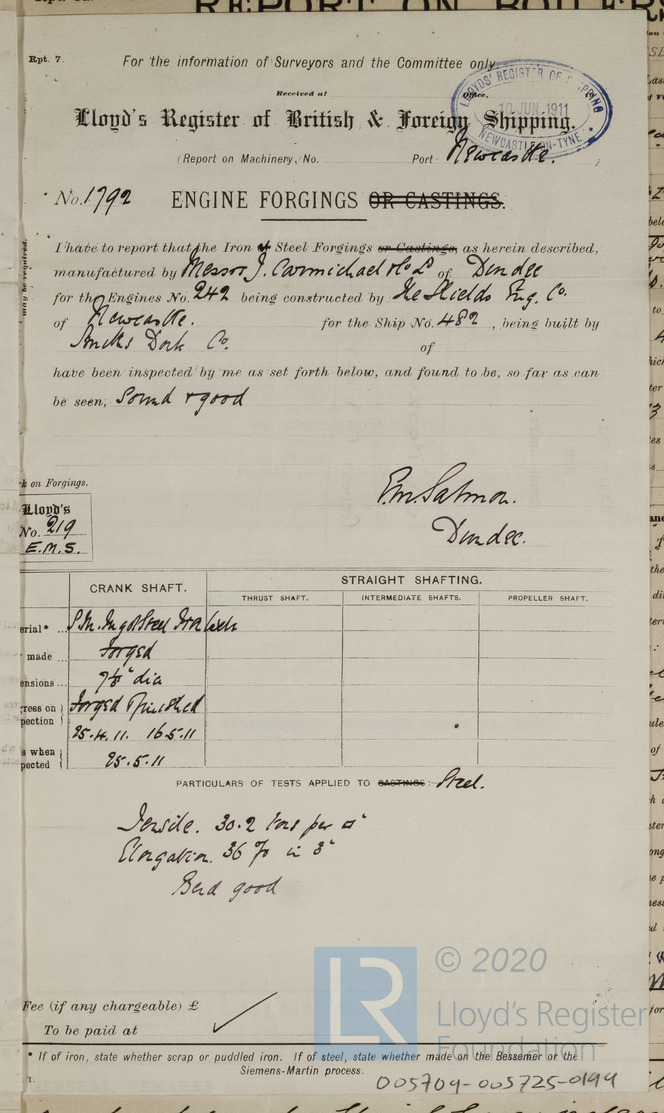 REPORT ON BOILERS
Rpt. 7.
For the information of Surveyors and the Committee only.
Received at Office,
LLOYDS' REGISTER OF SHIPPING
10 JUN. 1911
NEWCASTLE-ON-TYNE
Lloyd's Register of British & Foreign Shipping.
(Report on Machinery, No. Port Newcastle. )
No. 1792 ENGINE FORGINGS OR CASTINGS.
I have to report that the Iron or Steel Forgings or Castings, as herein described,
manufactured by Messrs J. Carmichael & Co Ld of Dundee
for the Engines No. 242 being constructed by The Shields Eng. Co.
of Newcastle. for the Ship No. 482, being built by
Smiths Dock Co. of
have been inspected by me as set forth below, and found to be, so far as can
be seen, Sound & good
may be required.
k on Forgings.
E.M. Salmon.
Dundee.
Lloyd's
No. 219
E.M.S.
CRANK SHAFT. STRAIGHT SHAFTING.
THRUST SHAFT. INTERMEDIATE SHAFTS. PROPELLER SHAFT.
erial* ... S.M. Ingot Steel
made ... forged
ensions ... 7⅞" dia
ress on } Forged & finished
pection } 25.4.11. 16.5.11
s when } 25.5.11
pected }
PARTICULARS OF TESTS APPLIED TO CASTINGS: Steel.
Tensile. 30.2 tons per □"
Elongation. 36 % in 3"
Bend good
Fee (if any chargeable) £
To be paid at
* If of iron, state whether scrap or puddled iron. If of steel, state whether made on the Bessemer or the
Siemens-Martin process.
005709-005725-0194
LR
© 2020
Lloyd's Register
Foundation